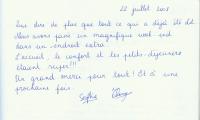 22 juillet 2008
Que dire de plus que tout ce qui a déjà été dit
Nous avons passé un magnifique week end
dans un endroit extra.
L'accueil, le confort et les petits-déjeuners
étaient super !!!
Un grand merci pour tout ! Et à une
prochaine fois
Sophie